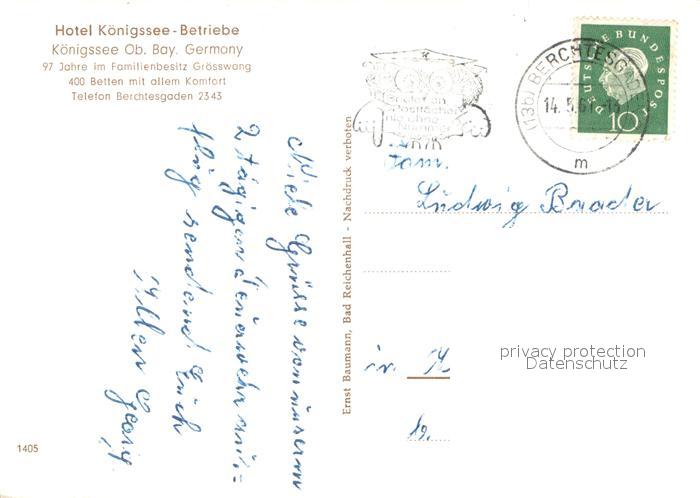 Hotel Königssee-Betriebe
Königssee Ob. Bay. Germany
97 Jahre im Familienbesitz Grösswang
400 Betten mit allem Komfort
Telefon Berchtesgaden 2343
Viele Grüsse von unserm
2 tägigen
sendend Euch
Georg
1405
Ernst Baumann, Bad Reichenhall - Nachdruck verboten
(13b) BERCHTESGADEN
14. 5. 61
m
DEUTSCHE BUNDESPOST
10
Fam.
Ludwig Baader
in
b.
privacy protection
Datenschutz